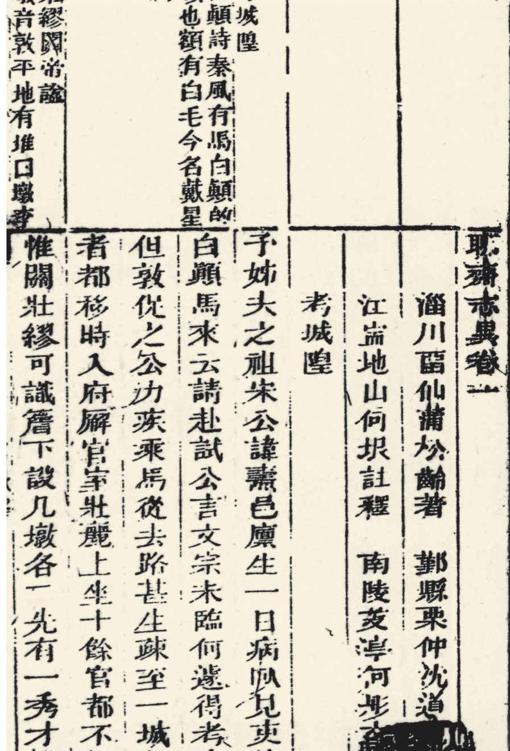 聊齋志異卷一
淄川畱仙蒲松齡著　鄞縣栗仲沈道
江甯地山何垠註釋　南陵莈渟何彤
考城隍
子姊夫之祖宋公諱燾邑廩生一日病臥見吏
白顚馬來云請赴試公言文宗未臨何遽得考
但敦促之公力疾乘馬從去路甚生疎至一城
者都移時入府廨官室壯麗上坐十餘官都不
惟關壯繆可識簷下設几墩各一先有一秀才
城隍
顚詩秦風有馬白顚的
也額有白毛今名戴星
繆關帝諡
音敦平地有堆曰墩